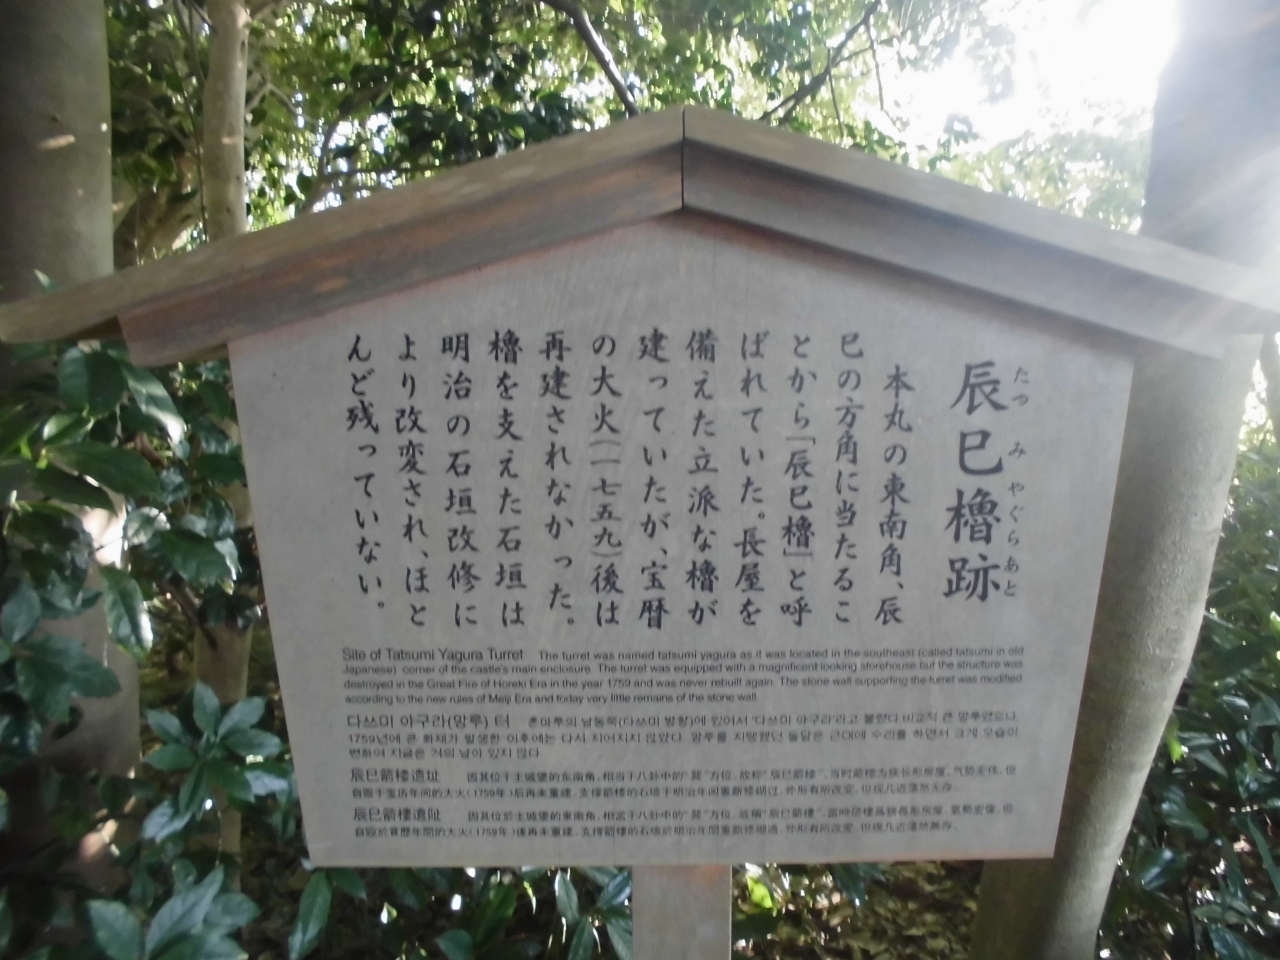 辰巳櫓跡
たつみやぐらあと
本丸の東南角、辰
巳の方角に当たるこ
とから「辰巳櫓」と呼
ばれていた。長屋を
備えた立派な櫓が
建っていたが、宝暦
の大火(一七五九)後は
再建されなかった。
櫓を支えた石垣は
明治の石垣改修に
より改変され、ほと
んど残っていない。
Site of Tatsumi Yagura Turret The turret was named tatsumi yagura as it was located in the southeast (called tatsumi in old
Japanese) corner of the castle's main enclosure. The turret was equipped with a magnificent looking storehouse but the structure was
destroyed in the Great Fire of Horeki Era in the year 1759 and was never rebuilt again. The stone wall supporting the turret was modified
according to the new rules of Meiji Era and today very little remains of the stone wall.
다쓰미 야구라(망루) 터 혼마루의 남동쪽(다쓰미 방향)에 있어서 '다쓰미 야구라'라고 불렸다. 비교적 큰 망루였으나,
1759년에 큰 화재가 발생한 이후에는 다시 지어지지 않았다. 망루를 지탱했던 돌담은 근대에 수리를 하면서 크게 모습이
변하여 지금은 거의 남아 있지 않다.
辰巳箭楼遗址 因其位于主城堡的东南角,相当于八卦中的"巽"方位,故称"辰巳箭楼"。当时箭楼为狭长形房屋,气势宏伟,但
自毁于宝历年间的大火(1759年)后再未重建。支撑箭楼的石墙于明治年间重新修砌过,外形有所改变,但现几近荡然无存。
辰巳箭樓遺址 因其位於主城堡的東南角,相當于八卦中的"巽"方位,故稱"辰巳箭樓"。當時箭樓爲狹長形房屋,氣勢宏偉,但
自毀於寶曆年間的大火(1759年)後再未重建。支撐箭樓的石墻於明治年間重新修砌過,外形有所改變,但現几近蕩然無存。